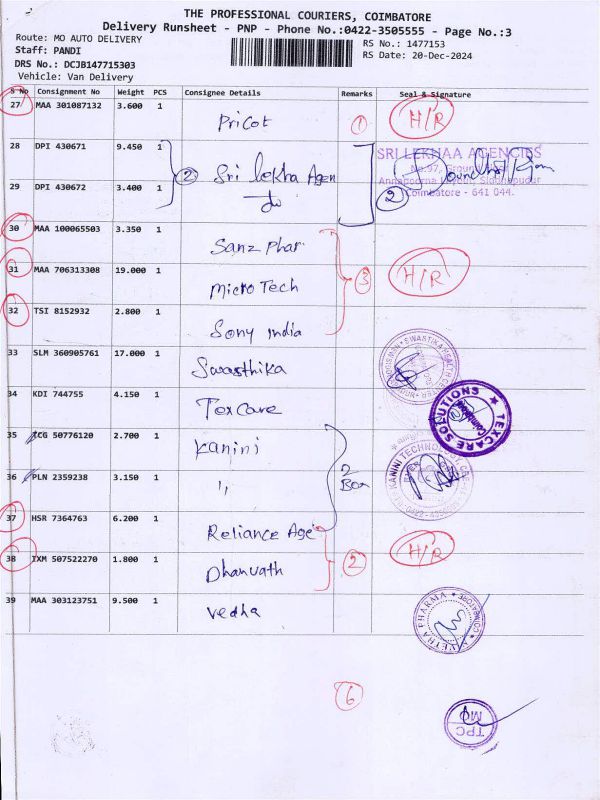 THE PROFESSIONAL COURIERS, COIMBATORE
Delivery Runsheet - PNP - Phone No.:0422-3505555 - Page No.:3
Route: MO AUTO DELIVERY
RS No.: 1477153
Staff: PANDI
RS Date: 20-Dec-2024
DRS No.: DCJB147715303
Vehicle: Van Delivery
S No Consignment No Weight PCS Consignee Details Remarks Seal & Signature
27 MAA 301087132 3.600 1 Pricot 1 H/R
28 DPI 430671 9.450 1 2 Sri lekha Agen
SRI LEKHAA AGENCIES
No.97, Ground
Annapoorna Layout, Siddhapudur
Coimbatore - 641 044.
2
29 DPI 430672 3.400 1
30 MAA 100065503 3.350 1 Sanz Phar
31 MAA 706313308 19.000 1 Micro Tech 3 H/R
32 TSI 8152932 2.800 1 Sony india
33 SLM 360905761 17.000 1 Swasthika
34 KDI 744755 4.150 1 Texcare
TEXCARE SOLUTIONS
Coimbatore
35 KCG 50776120 2.700 1 Kanini
KANINI TECHNOLOGY
36 PLN 2359238 3.150 1 " 2 Box
37 HSR 7364763 6.200 1 Reliance Age
38 IXM 507522270 1.800 1 Dhanvath 2 H/R
39 MAA 303123751 9.500 1 Vedha
VETRA PHARMA
COIMBATORE
6
TPC
MO